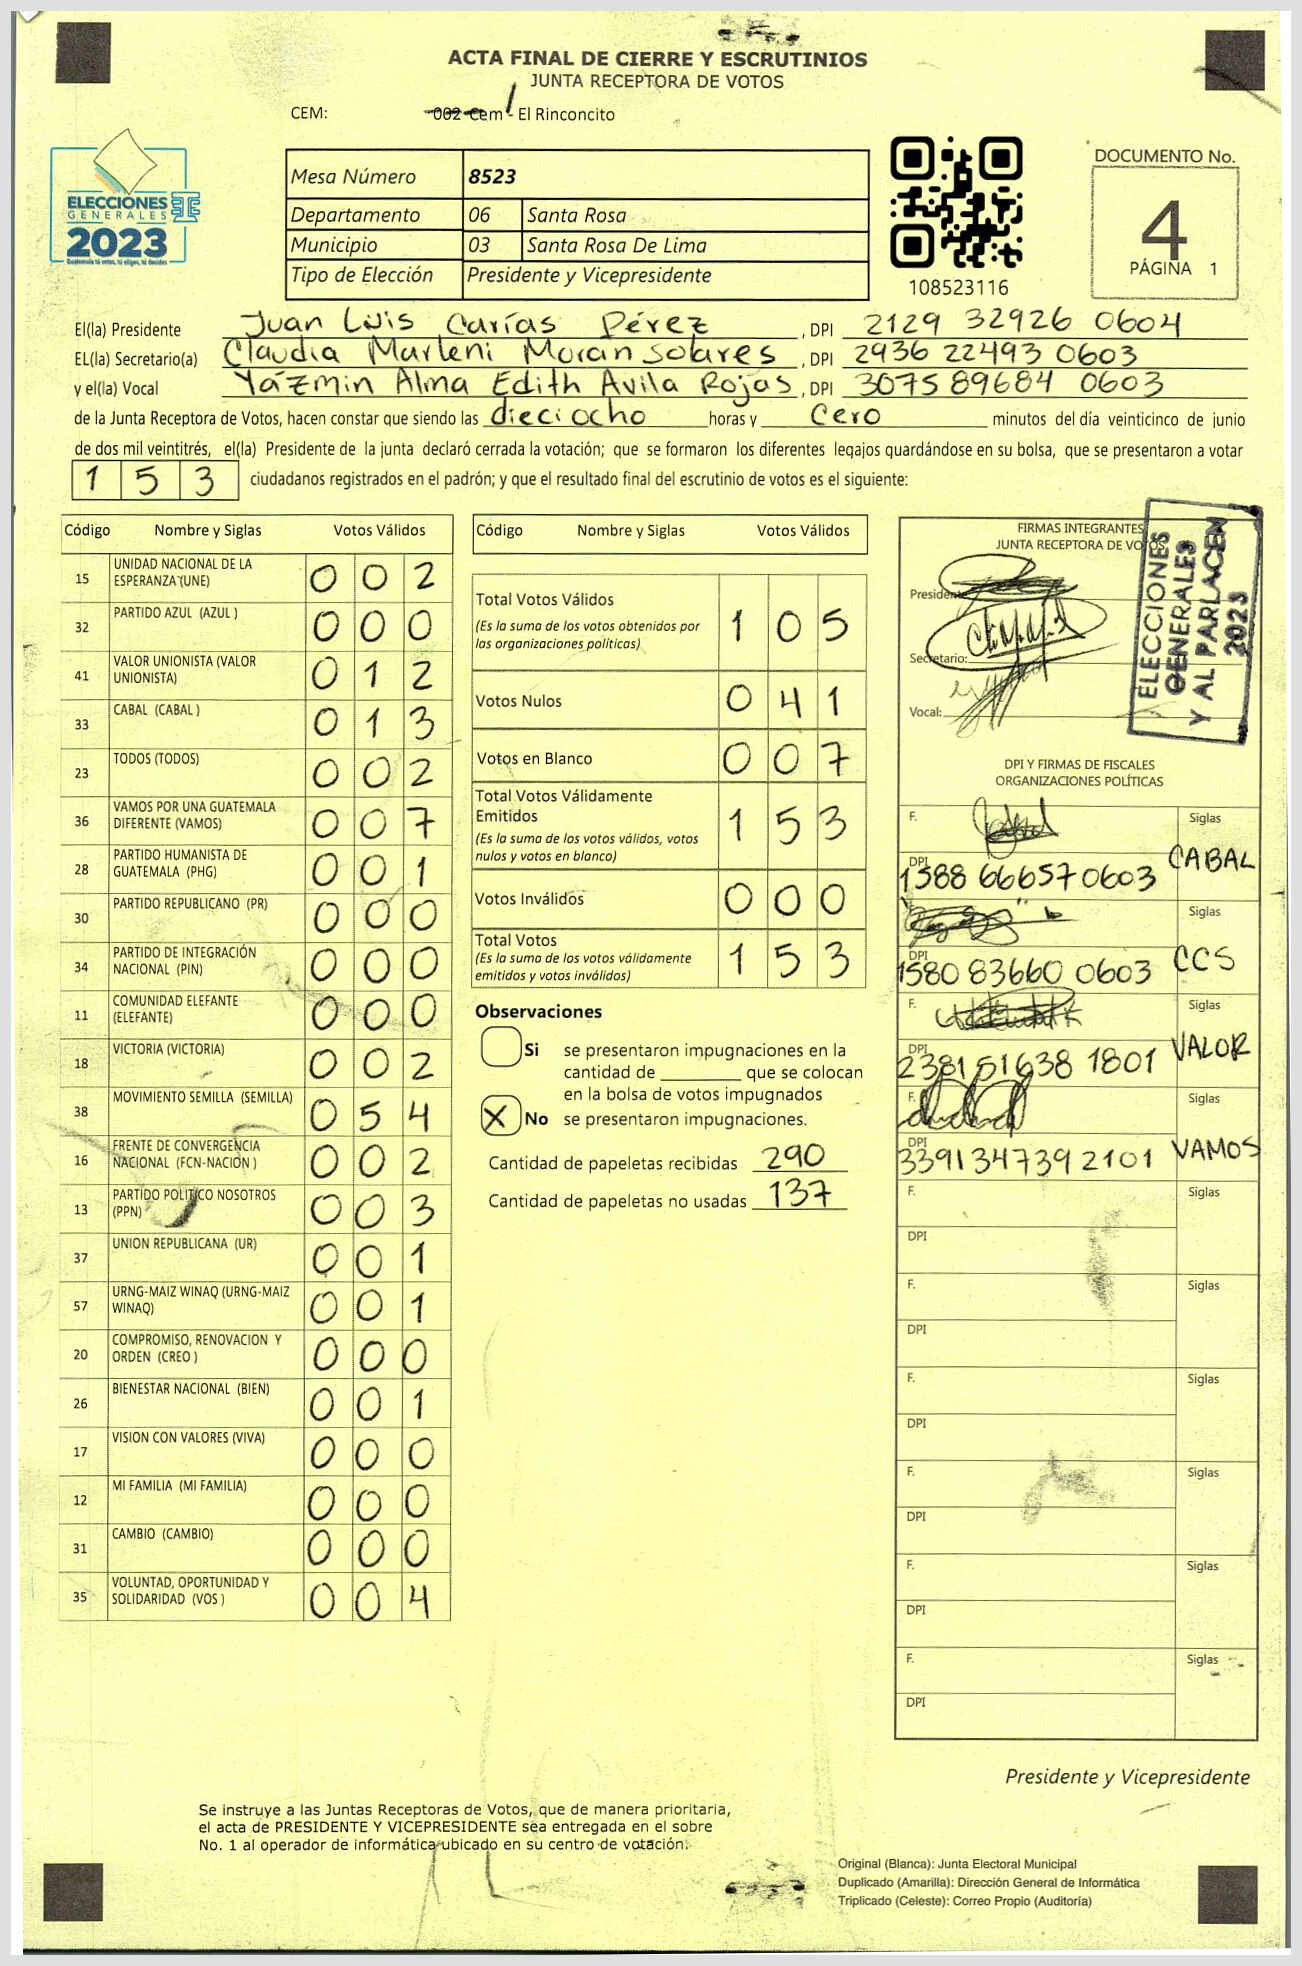 ACTA FINAL DE CIERRE Y ESCRUTINIOS
JUNTA RECEPTORA DE VOTOS
CEM: 002 Cem - El Rinconcito
ELECCIONES
GENERALES
2023
Guatemala tú votas, tú eliges, tú decides
Mesa Número 8523
Departamento 06 Santa Rosa
Municipio 03 Santa Rosa De Lima
Tipo de Elección Presidente y Vicepresidente
108523116
DOCUMENTO No.
4
PÁGINA 1
El(la) Presidente Juan Luis Carías Pérez, DPI 2129 32926 0604
EL(la) Secretario(a) Claudia Marleni Moran Solares, DPI 2936 22493 0603
y el(la) Vocal Yázmin Alma Edith Avila Rojas, DPI 3075 89684 0603
de la Junta Receptora de Votos, hacen constar que siendo las dieciocho horas y Cero minutos del día veinticinco de junio
de dos mil veintitrés, el(la) Presidente de la junta declaró cerrada la votación; que se formaron los diferentes legajos guardándose en su bolsa, que se presentaron a votar
1 5 3 ciudadanos registrados en el padrón; y que el resultado final del escrutinio de votos es el siguiente:
Código Nombre y Siglas Votos Válidos
15 UNIDAD NACIONAL DE LA ESPERANZA (UNE) 0 0 2
32 PARTIDO AZUL (AZUL ) 0 0 0
41 VALOR UNIONISTA (VALOR UNIONISTA) 0 1 2
33 CABAL (CABAL ) 0 1 3
23 TODOS (TODOS) 0 0 2
36 VAMOS POR UNA GUATEMALA DIFERENTE (VAMOS) 0 0 7
28 PARTIDO HUMANISTA DE GUATEMALA (PHG) 0 0 1
30 PARTIDO REPUBLICANO (PR) 0 0 0
34 PARTIDO DE INTEGRACIÓN NACIONAL (PIN) 0 0 0
11 COMUNIDAD ELEFANTE (ELEFANTE) 0 0 0
18 VICTORIA (VICTORIA) 0 0 2
38 MOVIMIENTO SEMILLA (SEMILLA) 0 5 4
16 FRENTE DE CONVERGENCIA NACIONAL (FCN-NACION ) 0 0 2
13 PARTIDO POLITICO NOSOTROS (PPN) 0 0 3
37 UNION REPUBLICANA (UR) 0 0 1
57 URNG-MAIZ WINAQ (URNG-MAIZ WINAQ) 0 0 1
20 COMPROMISO, RENOVACION Y ORDEN (CREO ) 0 0 0
26 BIENESTAR NACIONAL (BIEN) 0 0 1
17 VISION CON VALORES (VIVA) 0 0 0
12 MI FAMILIA (MI FAMILIA) 0 0 0
31 CAMBIO (CAMBIO) 0 0 0
35 VOLUNTAD, OPORTUNIDAD Y SOLIDARIDAD (VOS ) 0 0 4
Código Nombre y Siglas Votos Válidos
Total Votos Válidos 1 0 5
(Es la suma de los votos obtenidos por
las organizaciones políticas)
Votos Nulos 0 4 1
Votos en Blanco 0 0 7
Total Votos Válidamente
Emitidos 1 5 3
(Es la suma de los votos válidos, votos
nulos y votos en blanco)
Votos Inválidos 0 0 0
Total Votos 1 5 3
(Es la suma de los votos válidamente
emitidos y votos inválidos)
Observaciones
Si se presentaron impugnaciones en la
cantidad de ________ que se colocan
en la bolsa de votos impugnados
X No se presentaron impugnaciones.
Cantidad de papeletas recibidas 290
Cantidad de papeletas no usadas 137
FIRMAS INTEGRANTES
JUNTA RECEPTORA DE VOTOS
Presidente:
Secretario:
Vocal:
ELECCIONES
GENERALES
Y AL PARLACEN
2023
DPI Y FIRMAS DE FISCALES
ORGANIZACIONES POLÍTICAS
F. Siglas
DPI 1588 66657 0603 CABAL
F. Siglas
DPI 1580 83660 0603 CCS
F. Siglas
DPI 2381 51638 1801 VALOR
F. Siglas
DPI 3391347392101 VAMOS
F. Siglas
DPI
F. Siglas
DPI
F. Siglas
DPI
F. Siglas
DPI
F. Siglas
DPI
F. Siglas
DPI
Presidente y Vicepresidente
Se instruye a las Juntas Receptoras de Votos, que de manera prioritaria,
el acta de PRESIDENTE Y VICEPRESIDENTE sea entregada en el sobre
No. 1 al operador de informática ubicado en su centro de votación.
Original (Blanca): Junta Electoral Municipal
Duplicado (Amarilla): Dirección General de Informática
Triplicado (Celeste): Correo Propio (Auditoría)